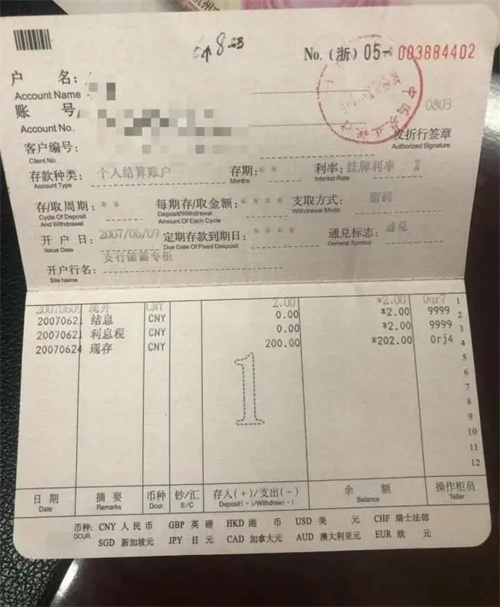 8.53
No. (浙) 05- 003884402
户 名:
Account Name
账 号
Account No.
0803
客户编号:
Client No.
发折行签章
Authorized Signature
存款种类: 个人结算账户 存期: 利率: 挂牌利率
Account Type Months Interest Rate
存/取周期: * * 每期存/取金额: * * * 支取方式: 密码
Cycle Of Deposit And Withdrawal Deposit/Withdrawal Amount Of Each Cycle Withdrawal Mode
开 户 日: 2007/06/09 定期存款到期日: 通兑标志: 通兑
Issue Date Due Date Of Fixed Desposit General Symbol
支行储蓄专柜
开户行名:
Site Name
20070609 现开 CNY 2.00 *2.00 0qr7 1
20070621 结息 CNY 0.00 *2.00 9999 2
20070621 利息税 CNY 0.00 *2.00 9999 3
20070624 现存 CNY 200.00 *202.00 0rj4 4
5
6
1
7
8
9
10
11
12
日 期 摘 要 币种 钞/汇 存入(+)/支出(-) 余 额 操作柜员
Date Remarks Dour. E/C Deposit(+)/Withdraw(-) Balance Teller
币种: CNY 人 民 币 GBP 英 镑 HKD 港 币 USD 美 元 CHF 瑞士法郎
DOUR. SGD 新加坡元 JPY 日 元 CAD 加拿大元 AUD 澳大利亚元 EUR 欧 元